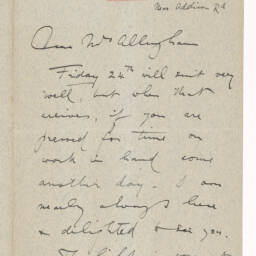 Near Addison Rd
Dear Mrs Allingham
Friday 24th will suit very
well, but when that
arrives, if you are
pressed for time or
work in hand come
another day. I am
nearly always here
& delighted to see you.
The light is